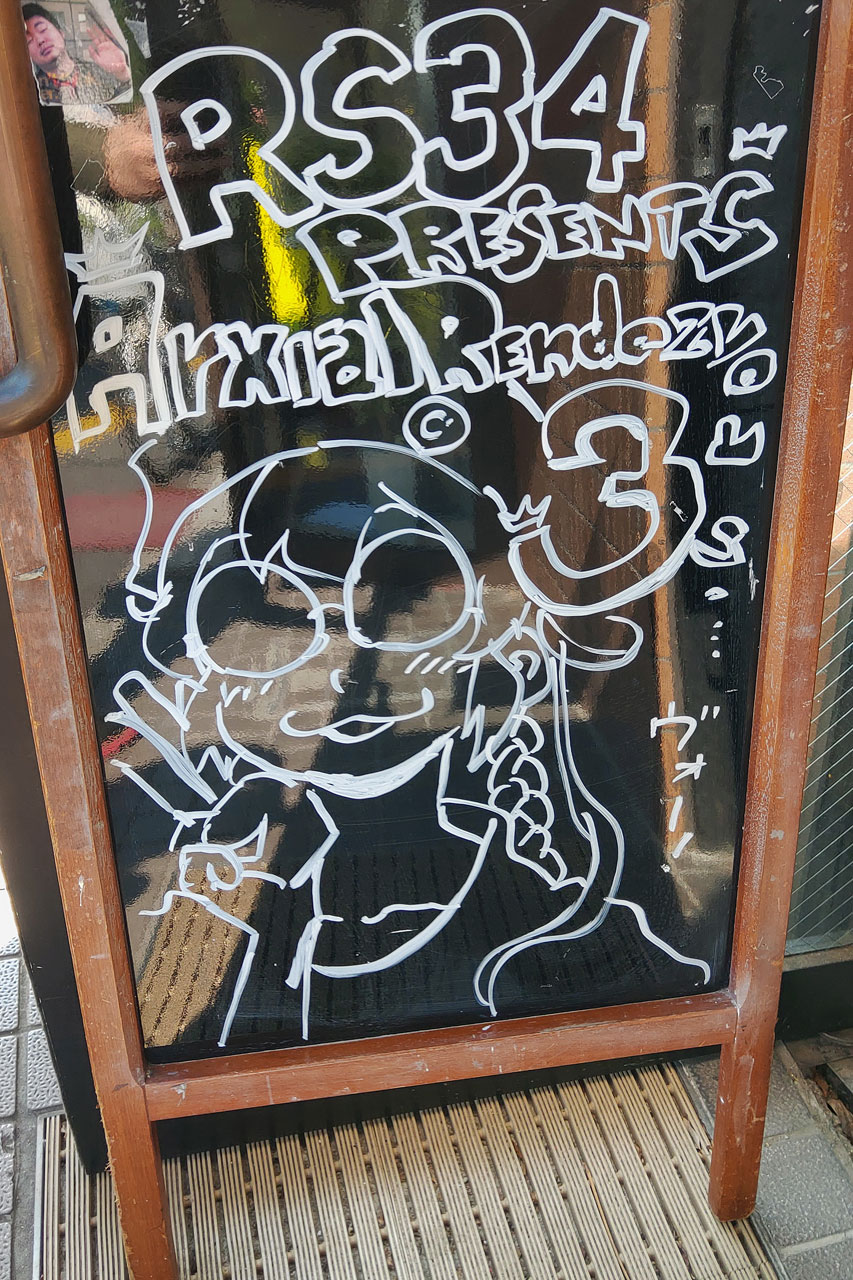 RS34
PRESENTS
Arxial Rendezvous...
©
3
ヴォー